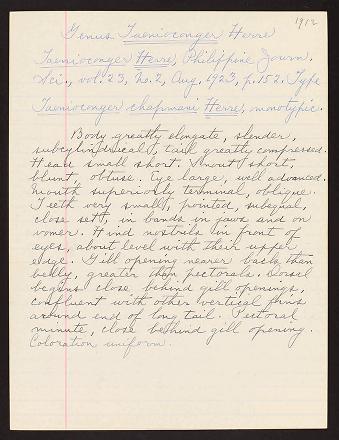 1912
Genus Taenioconger Herre
Taenioconger Herre, Philippine Journ.
Sci., vol. 23, No. 2, Aug. 1923, p. 152. Type
Taenioconger chapmani Herre, monotypic.
Body greatly elongate, slender,
subcylindrical, tail greatly compressed.
Head small short. Snout short,
blunt, obtuse. Eye large, well advanced.
Mouth superiorly terminal, oblique.
Teeth very small, pointed, subequal,
close sett, in bands in jaws and on
vomer. Hind nostrils in front of
eyes, about level with their upper
edge. Gill opening nearer back than
belly, greater than pectorals. Dorsal
begins close behind gill openings,
confluent with other vertical fins
around end of long tail. Pectoral
minute, close behind gill opening.
Coloration uniform.